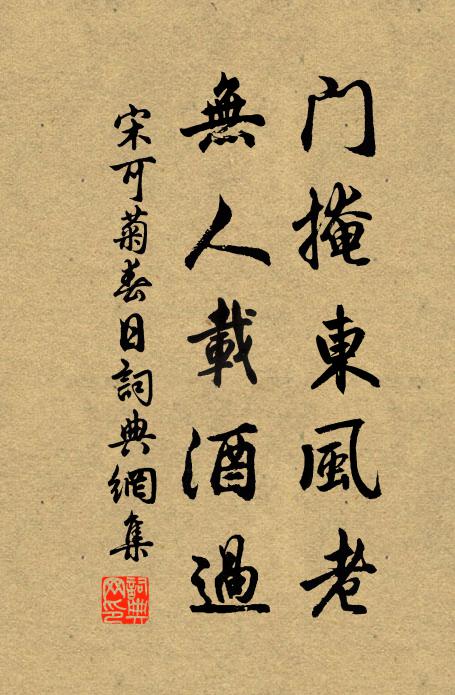 门掩東風老
無人載酒過
宋可菊春日詞典網集
詞典网印